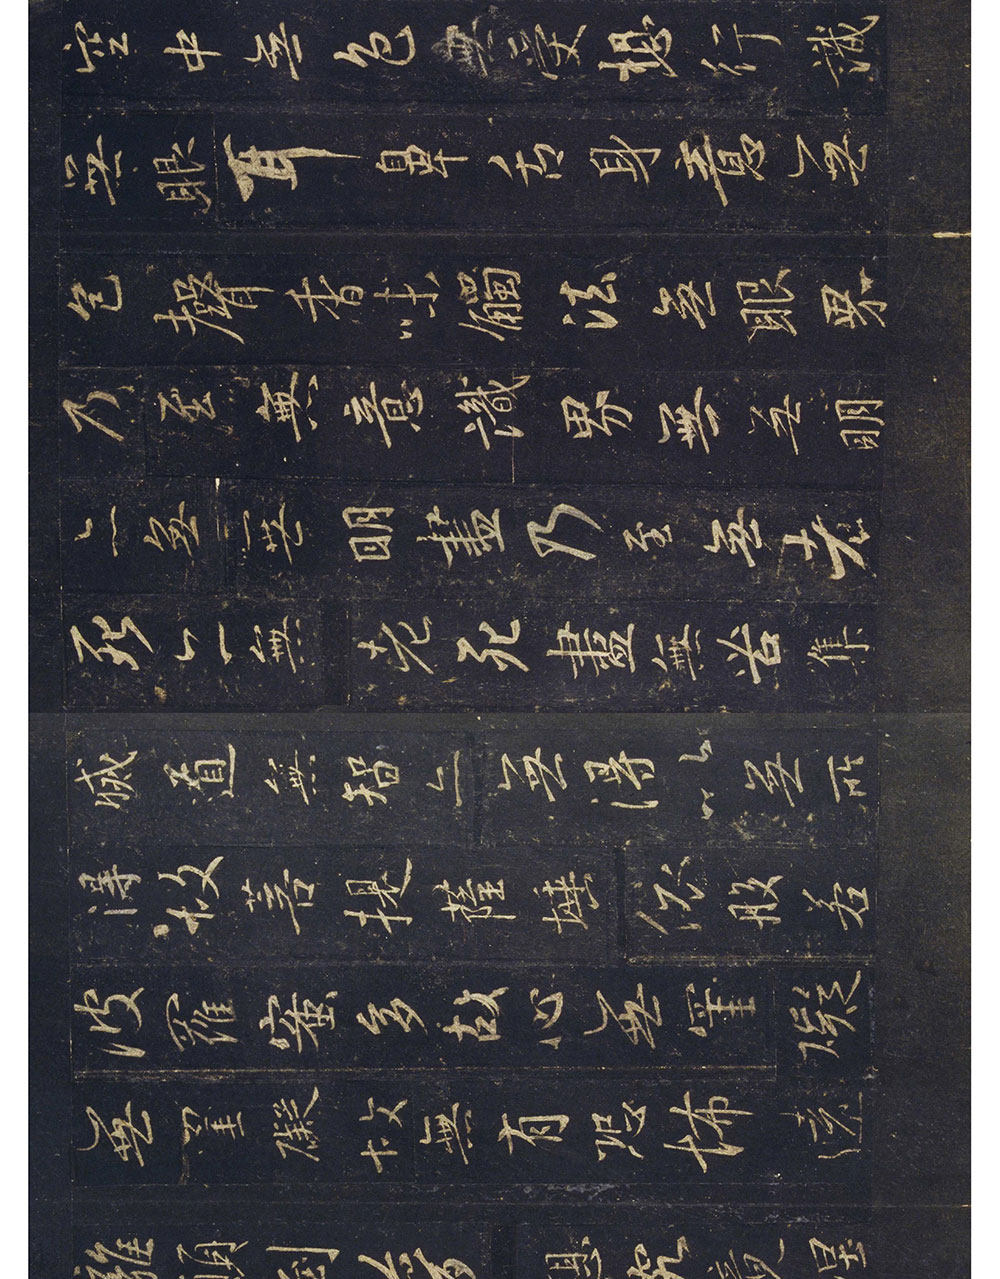 空中无色無受想行識
無眼耳鼻舌身意无
色聲香味觸法无眼界
乃至無意識界無无明
亦无無明盡乃至无老
死亦無老死盡無苦集
滅道無智亦无得以无所
得故菩提薩埵依般若
波羅蜜多故心无罣礙
无罣礙故無有恐怖遠
離顛倒夢想究竟涅